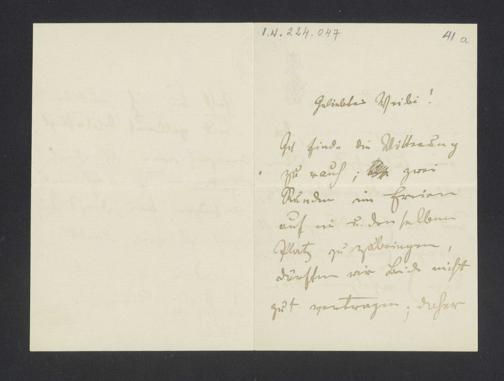 I.N. 224.047
41 a
Geliebtes Weibi!
Ich finde die Witterung
zu rauh; zwei
Stunden im Freien
auf ein u. demselben
Platz zu zubringen,
dürften wir beide nicht
gut vertragen; daher